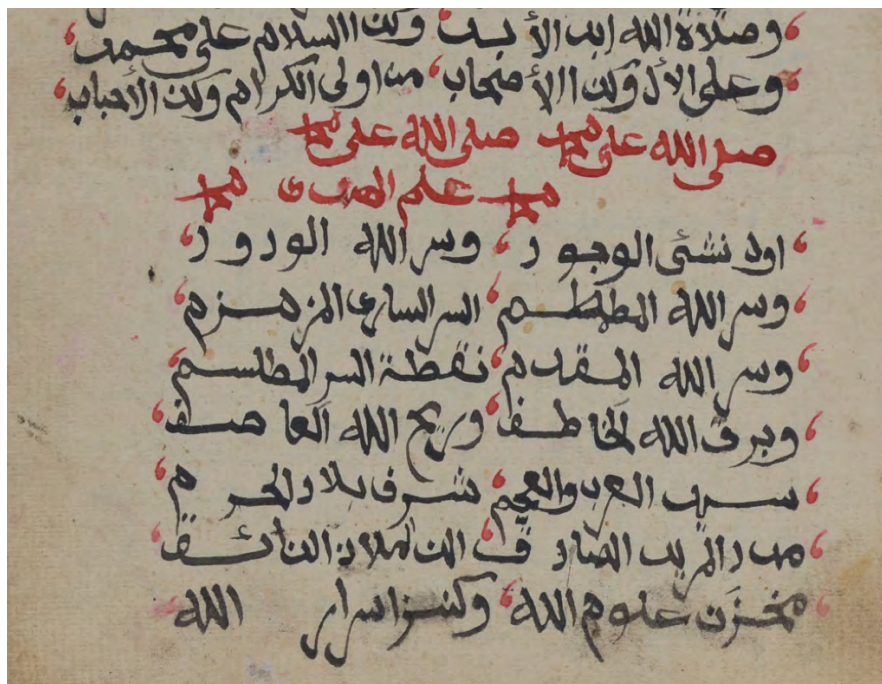 وصلاة الله ابد الأبد وكذا السلام على محمد
وعلى الأل وكذا الأصحاب من اولى الكرام وكذا الأحباب
صلى الله على محمد صلى الله على محمد
محمد علم الهدى محمد
اول نشئ الوجود وسر الله الودود
وسر الله المطلطم السر السارى المزمزم
وسر الله المقدم نقطة السر المطلسم
وبرق الله الخاطف وريح الله العاصف
سيد العرب والعجم شرف بلاد الحرم
مدد المريد الصادق
مخزن علوم الله وكنز اسرار الله